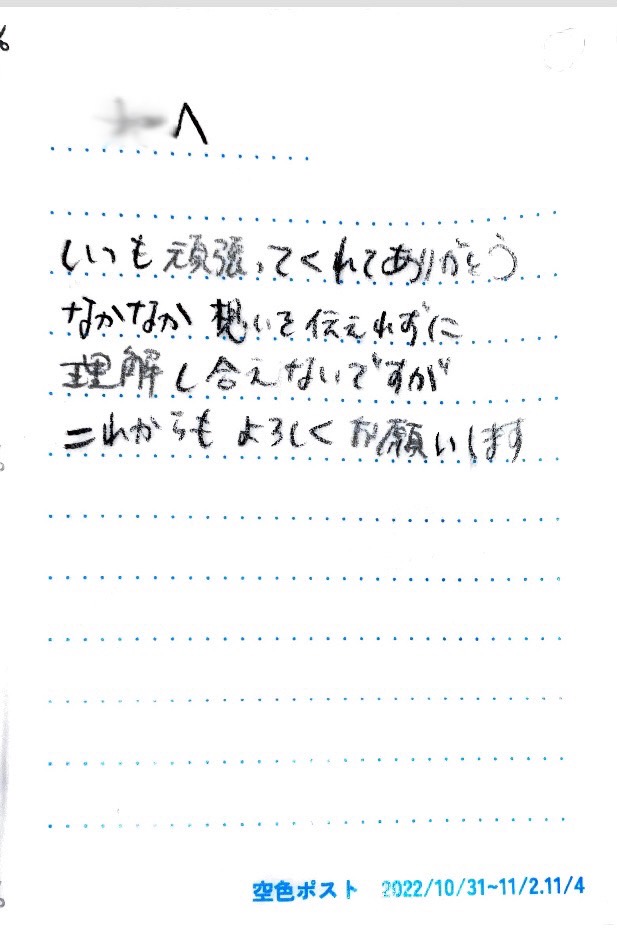 へ
いつも頑張ってくれてありがとう
なかなか想いを伝えれずに
理解し合えないですが
これからもよろしくお願いします
空色ポスト 2022/10/31~11/2.11/4